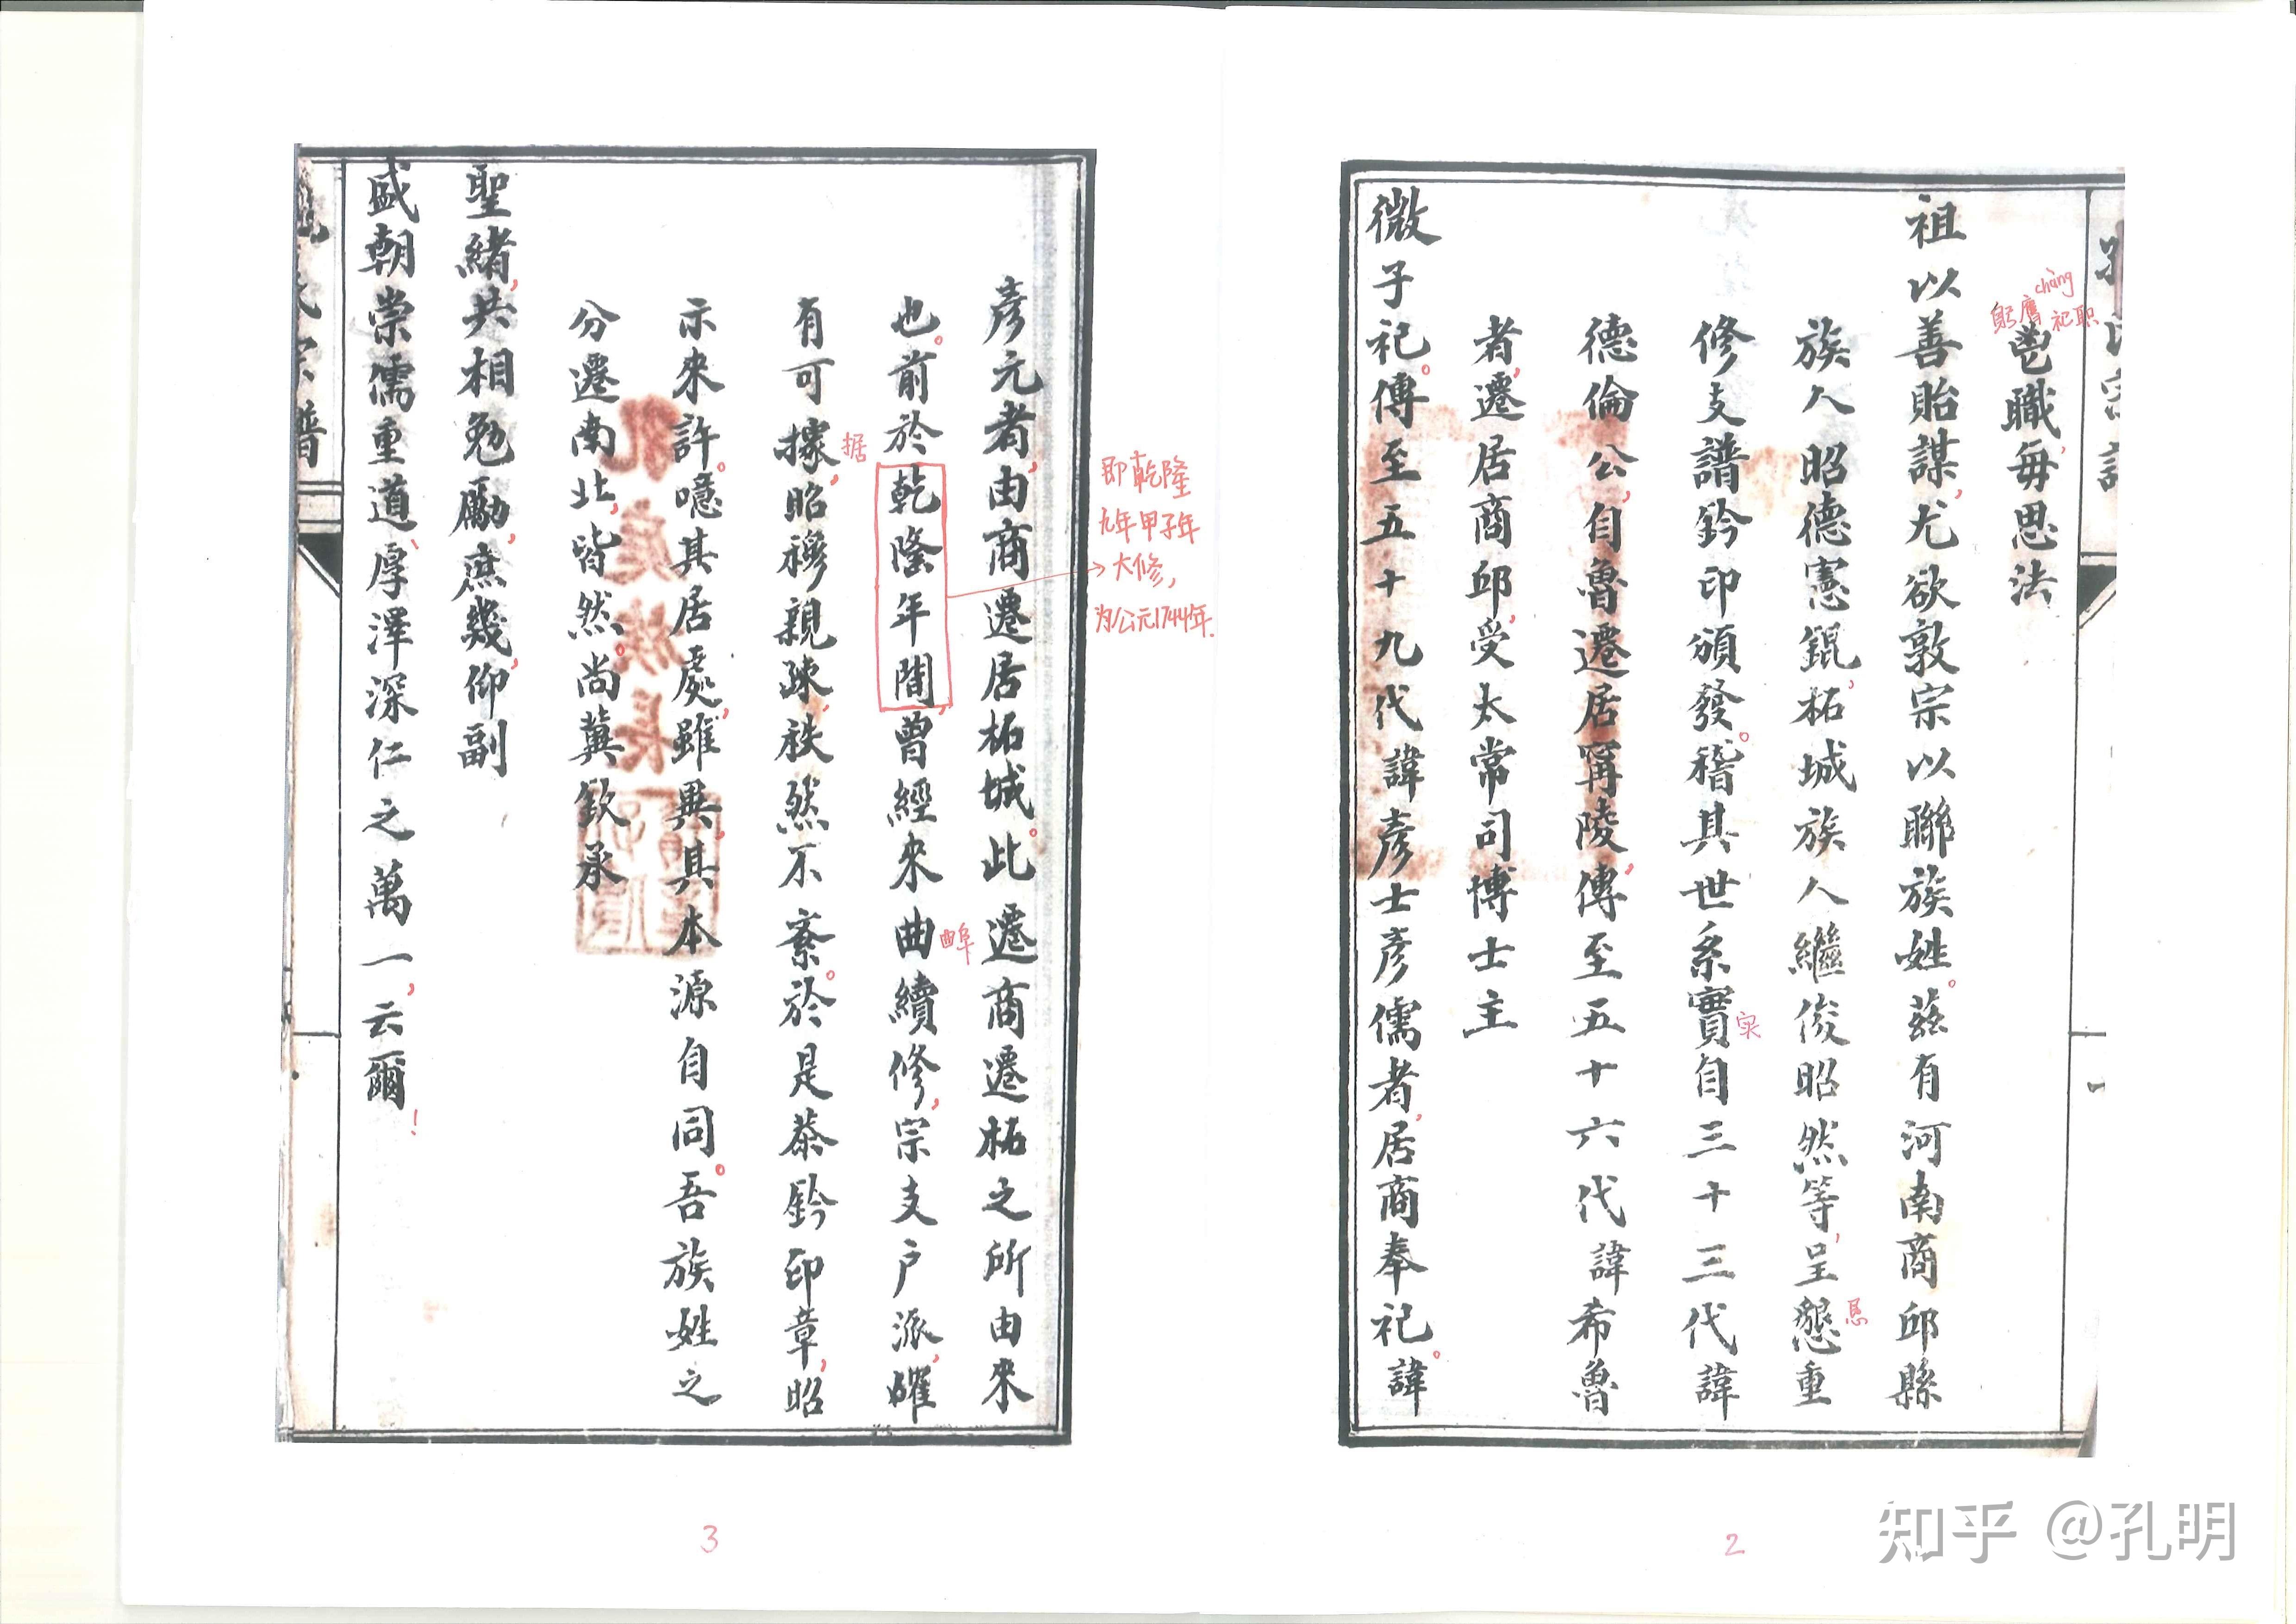 鬯職，每思法
祖以善貽謀，尤欲敦宗以聯族姓。茲有河南商邱縣
族人昭德憲錕，柘城族人繼俊昭然等，呈懇重
修支譜鈐印頒發。稽其世系實自三十三代諱
德倫公，自魯遷居寗陵，傳至五十六代諱希魯
者，遷居商邱，受太常司博士主
微子祀。傳至五十九代諱彥士彥儒者，居商奉祀。諱
彥元者，由商遷居柘城。此遷商遷柘之所由來
也。前於乾隆年間，曾經來曲續修，宗支户派，皭
有可據，昭穆親疎，秩然不紊。於是恭鈐印章，昭
示來許。噫其居處，雖異，其本源自同。吾族姓之
分遷南北，皆然。尚冀欽承
聖緒，共相勉勵，庶幾，仰副
盛朝崇儒重道、厚澤深仁之萬一，云爾！
躬膺祀职
chàng
恳
实
即乾隆
九年甲子年
大修，
为公元1744年.
据
曲阜
氏宗譜
2
3
知乎 @孔明